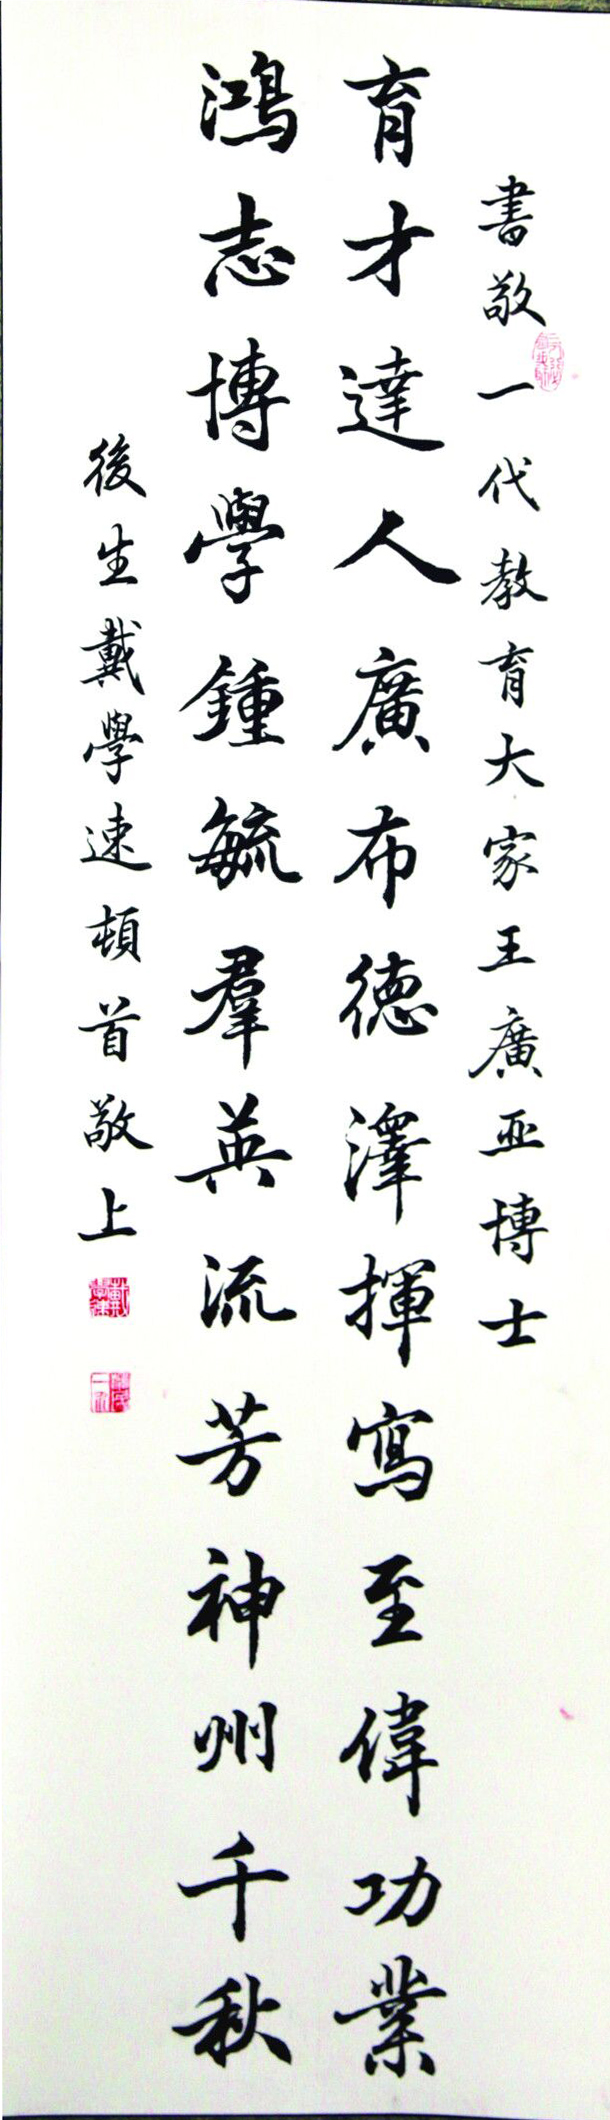 書敬一代教育大家王廣亚博士
育才達人廣布德澤揮寫至偉功業
鴻志博學鍾毓羣英流芳神州千秋
後生戴學速頓首敬上